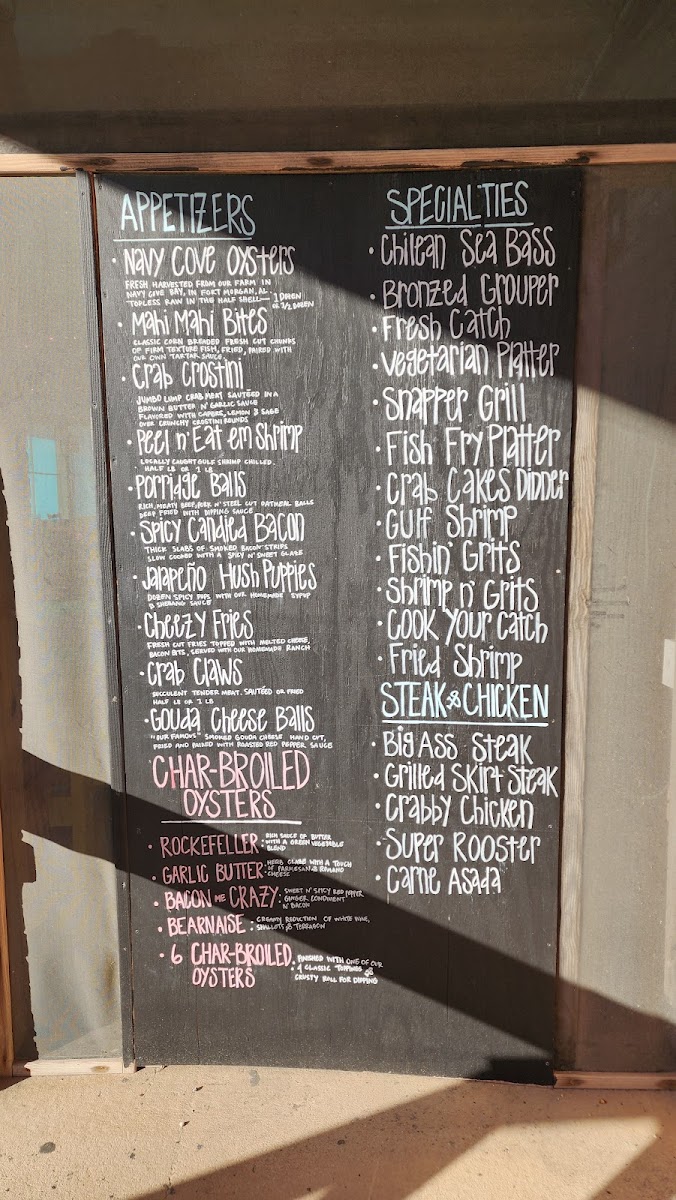 APPETIZERS
• Navy Cove Oysters
FRESH HARVESTED FROM OUR FARM IN
NAVY COVE BAY, IN FORT MORGAN, AL.
TOPLESS RAW IN THE HALF SHELL— 1 DOZEN
OR 1/2 DOZEN
• Mahi Mahi Bites
CLASSIC CORN BREADED FRESH CUT CHUNKS
OF FIRM TEXTURE FISH, FRIED, PAIRED WITH
OUR OWN TARTAR SAUCE
• Crab Crostini
JUMBO LUMP CRAB MEAT SAUTÉED IN A
BROWN BUTTER N' GARLIC SAUCE
FLAVORED WITH CAPERS, LEMON & SAGE
OVER CRUNCHY CROSTINI ROUNDS
• Peel n' Eat em Shrimp
LOCALLY CAUGHT GULF SHRIMP CHILLED.
HALF LB OR 1 LB
• Porridge Balls
RICH, MEATY BEEF, PORK N' STEEL CUT OATMEAL BALLS
DEEP FRIED WITH DIPPING SAUCE
• Spicy Candied Bacon
THICK SLABS OF SMOKED BACON STRIPS
SLOW COOKED WITH A SPICY N' SWEET GLAZE
• Jalapeño Hush Puppies
DOZEN SPICY PUPS WITH OUR HOMEMADE SYRUP
& SHEBANG SAUCE
• Cheezy Fries
FRESH CUT FRIES TOPPED WITH MELTED CHEESE,
BACON BITS, SERVED WITH OUR HOMEMADE RANCH
• Crab Claws
SUCCULENT TENDER MEAT. SAUTÉED OR FRIED
HALF LB OR 1 LB
• Gouda Cheese Balls
"OUR FAMOUS" SMOKED GOUDA CHEESE HAND CUT,
FRIED AND PAIRED WITH ROASTED RED PEPPER SAUCE
CHAR-BROILED
OYSTERS
• ROCKEFELLER: RICH SAUCE OF BUTTER
WITH A GREEN VEGETABLE
BLEND
• GARLIC BUTTER: HERB GLAZE WITH A TOUCH
OF PARMESAN & ROMANO
CHEESE
• BACON ME CRAZY: SWEET N' SPICY RED PEPPER
GINGER CONDIMENT
N' BACON
• BEARNAISE: CREAMY REDUCTION OF WHITE WINE,
SHALLOTS & TERRAGON
• 6 CHAR-BROILED
OYSTERS
FINISHED WITH ONE OF OUR
4 CLASSIC TOPPINGS &
CRUSTY ROLL FOR DIPPING
SPECIALTIES
• Chilean Sea Bass
• Bronzed Grouper
• Fresh Catch
• Vegetarian Platter
• Snapper Grill
• Fish Fry Platter
• Crab Cakes Dinner
• Gulf Shrimp
• Fishin' Grits
• Shrimp n' Grits
• Cook Your Catch
• Fried Shrimp
STEAK & CHICKEN
• Big Ass Steak
• Grilled Skirt Steak
• Crabby Chicken
• Super Rooster
• Carne Asada